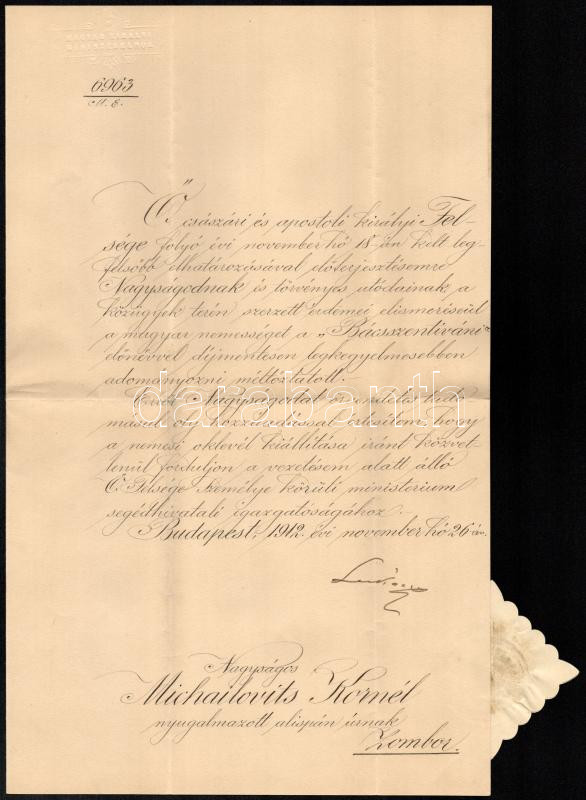 MAGYAR KIRÁLYI
MINISZTERELNÖK
6963
M. E.
Ő császári és apostoli királyi Fel-
sége folyó évi november hó 18-án kelt leg-
felsőbb elhatározásával előterjesztésemre
Nagyságodnak és törvényes utódainak a
közügyek terén szerzett érdemei elismeréséül
a magyar nemességet a „Bácsszentiváni"
előnévvel díjmentesen legkegyelmesebben
adományozni méltóztatott.
Erről Nagyságodat örvendetes tudo-
másul oly hozzáadással értesítem, hogy
a nemesi oklevél kiállítása iránt közvet-
lenül forduljon a vezetésem alatt álló
Ő Felsége Személye körüli ministerium
segédhivatali igazgatóságához.
Budapest, 1912. évi november hó 26-án.
Nagyságos
Michailovits Kornél
nyugalmazott alispán úrnak
Zombor.
darabanth